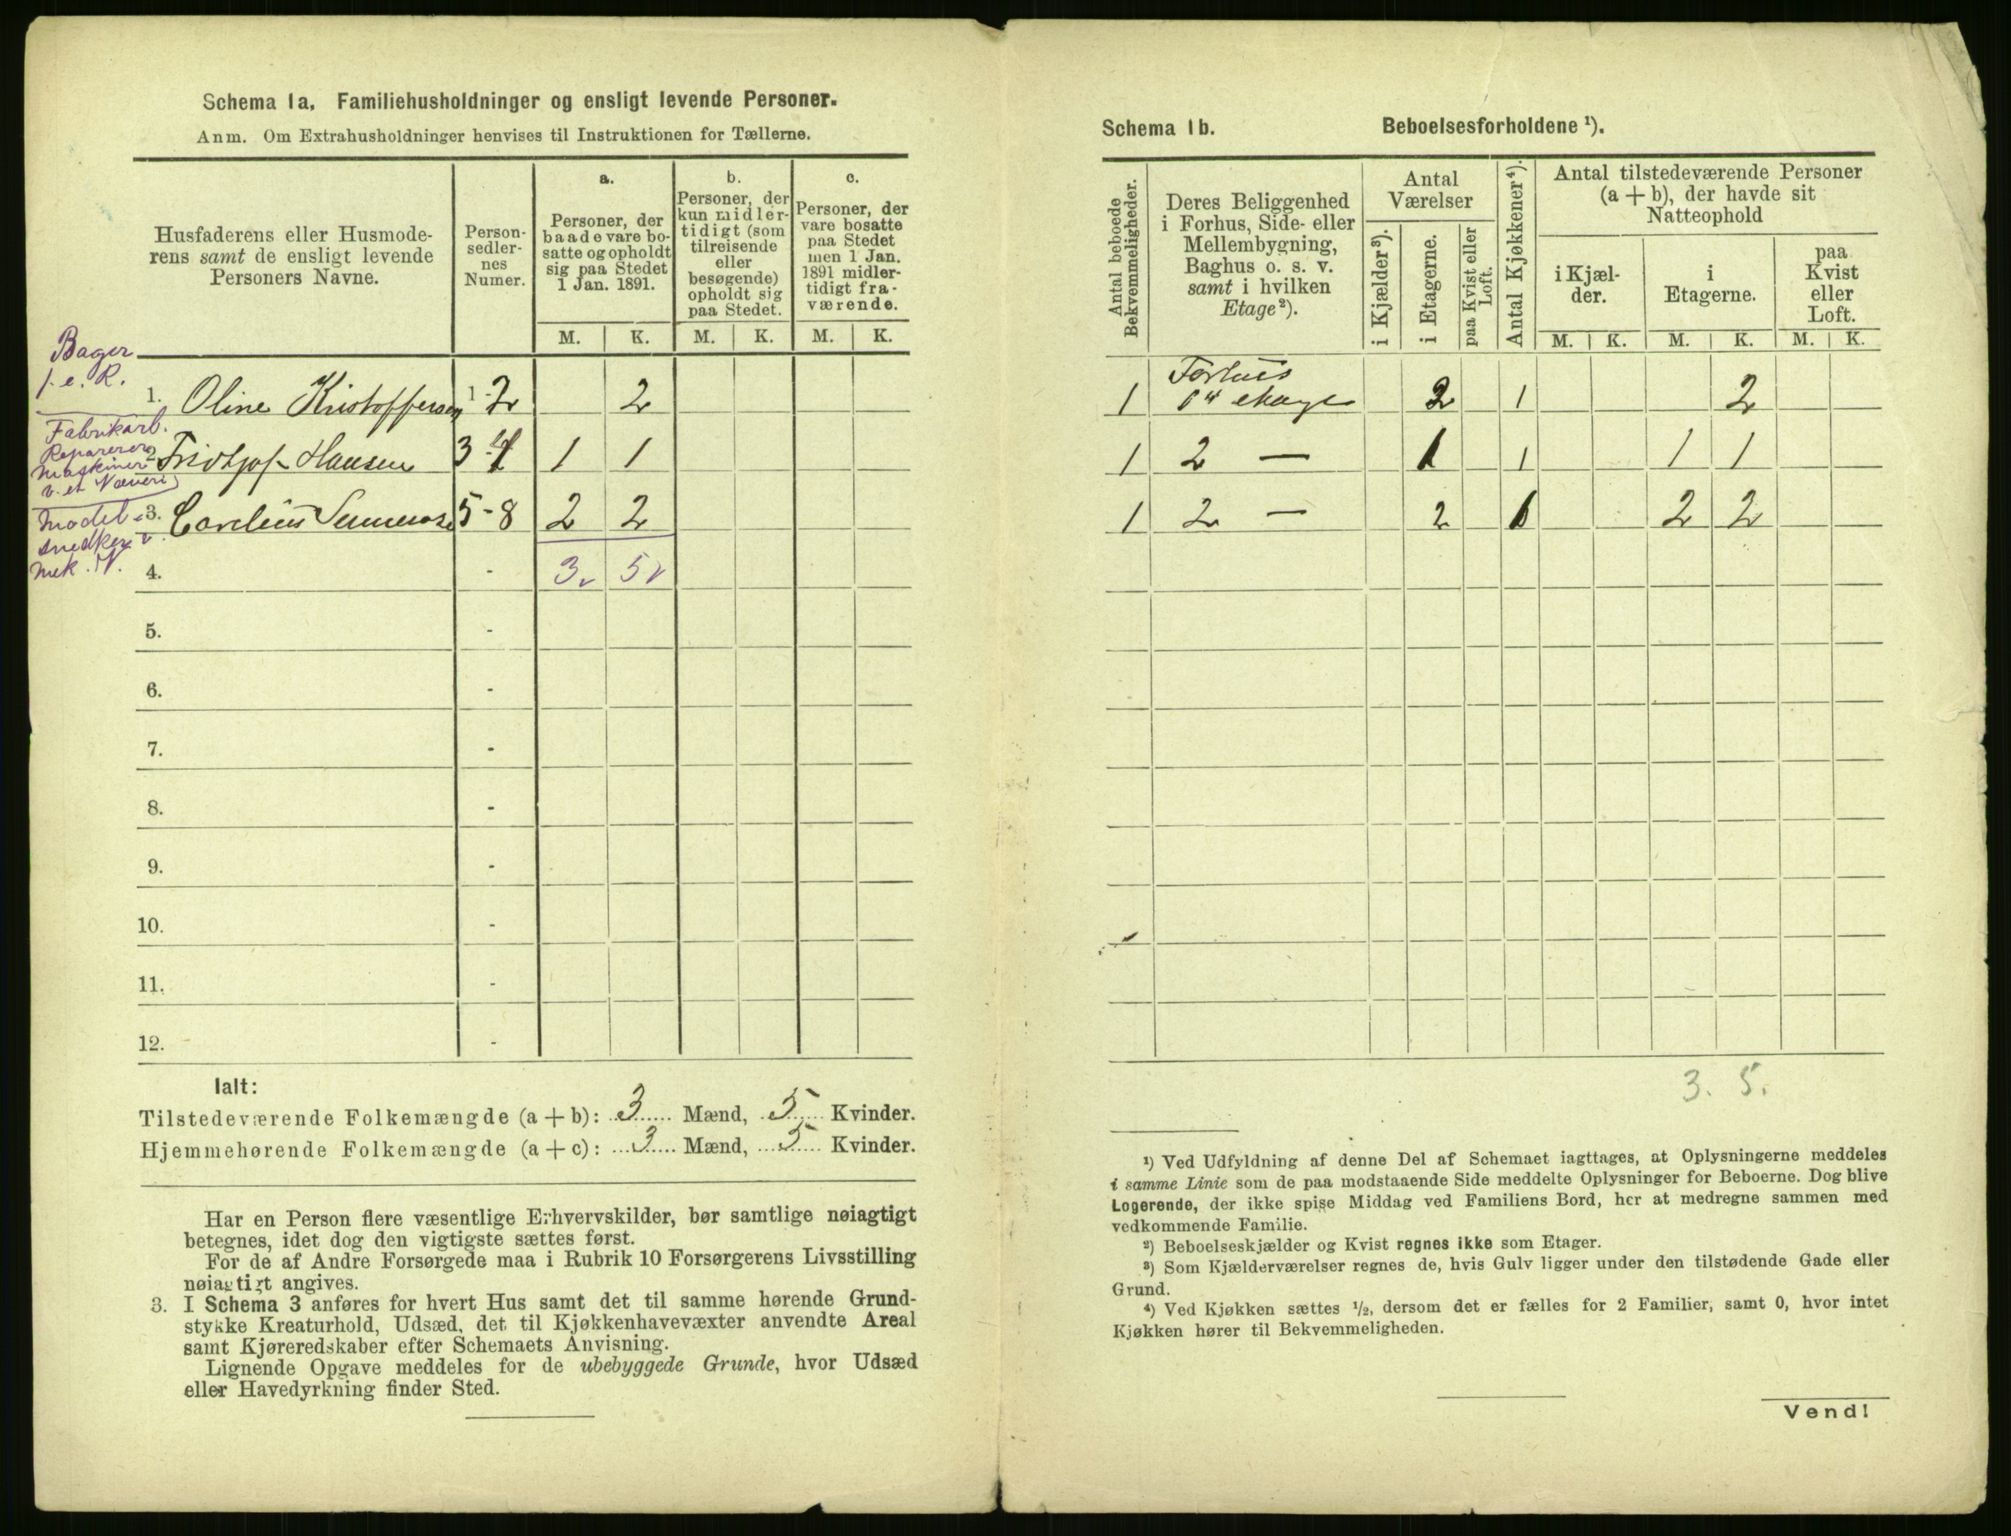 Schema 1a. Familiehusholdninger og ensligt levende Personer.
Anm. Om Extrahusholdninger henvises til Instruktionen for Tællerne.
Husfaderens eller Husmode-
rens samt de ensligt levende
Personers Navne.
Person-
sedler-
nes
Numer.
a.
Personer, der
baade vare bo-
satte og opholdt
sig paa Stedet
1 Jan. 1891.
b.
Personer, der
kun midler-
tidigt (som
tilreisende
eller
besøgende)
opholdt sig
paa Stedet.
c.
Personer, der
vare bosatte
paa Stedet
men 1 Jan.
1891 midler-
tidigt fra-
værende.
M. K. M. K. M. K.
Bager
f. e. R.
1. Oline Kristoffersen 1-2 2
Fabrikarb.
Reparerer
Maskiner
v. et Væveri
2 Fridtjof Hansen 3-4 1 1
Model-
snedker v.
mek. V.
3. 5-8 2 2
4. - 3v 5v
5. -
6. -
7. -
8. -
9. -
10. -
11. -
12. -
Ialt:
Tilstedeværende Folkemængde (a + b): 3 Mænd, 5 Kvinder.
Hjemmehørende Folkemængde (a + c): 3 Mænd, 5 Kvinder.
Har en Person flere væsentlige Erhvervskilder, bør samtlige nøiagtigt
betegnes, idet dog den vigtigste sættes først.
For de af Andre Forsørgede maa i Rubrik 10 Forsørgerens Livsstilling
nøiagtigt angives.
3. I Schema 3 anføres for hvert Hus samt det til samme hørende Grund-
stykke Kreaturhold, Udsæd, det til Kjøkkenhavevæxter anvendte Areal
samt Kjøreredskaber efter Schemaets Anvisning.
Lignende Opgave meddeles for de ubebyggede Grunde, hvor Udsæd
eller Havedyrkning finder Sted.
Schema 1b. Beboelsesforholdene ¹).
Antal beboede
Bekvemmeligheder.
Deres Beliggenhed
i Forhus, Side- eller
Mellembygning,
Baghus o. s. v.
samt i hvilken
Etage²).
Antal
Værelser
i Kjælder³).
i Etagerne.
paa Kvist eller
Loft.
Antal Kjøkkener⁴).
Antal tilstedeværende Personer
(a + b), der havde sit
Natteophold
i Kjæl-
der.
i
Etagerne.
paa
Kvist
eller
Loft.
M. K. M. K. M. K.
1 Forhus
1ste etage 2 1 2
1 2 — 1 1 1 1
1 2 — 2 1 2 2
3. 5.
¹) Ved Udfyldning af denne Del af Schemaet iagttages, at Oplysningerne meddeles
i samme Linie som de paa modstaaende Side meddelte Oplysninger for Beboerne. Dog blive
Logerende, der ikke spise Middag ved Familiens Bord, her at medregne sammen med
vedkommende Familie.
²) Beboelseskjælder og Kvist regnes ikke som Etager.
³) Som Kjælderværelser regnes de, hvis Gulv ligger under den tilstødende Gade eller
Grund.
⁴) Ved Kjøkken sættes ½, dersom det er fælles for 2 Familier, samt 0, hvor intet
Kjøkken hører til Bekvemmeligheden.
Vend!